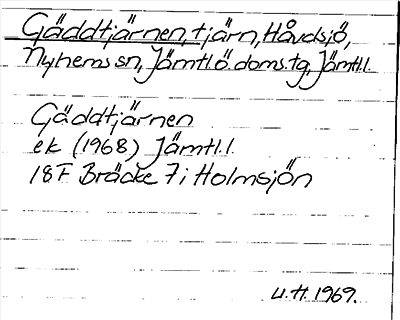 Gäddtjärnen, tjärn, Håvdsjö,
Nyhems sn, Jämtl.ö.doms.tg, Jämtl.l.
Gäddtjärnen
ek (1968) Jämtl.l.
18F Bräcke 7i Holmsjön
U.H. 1969.